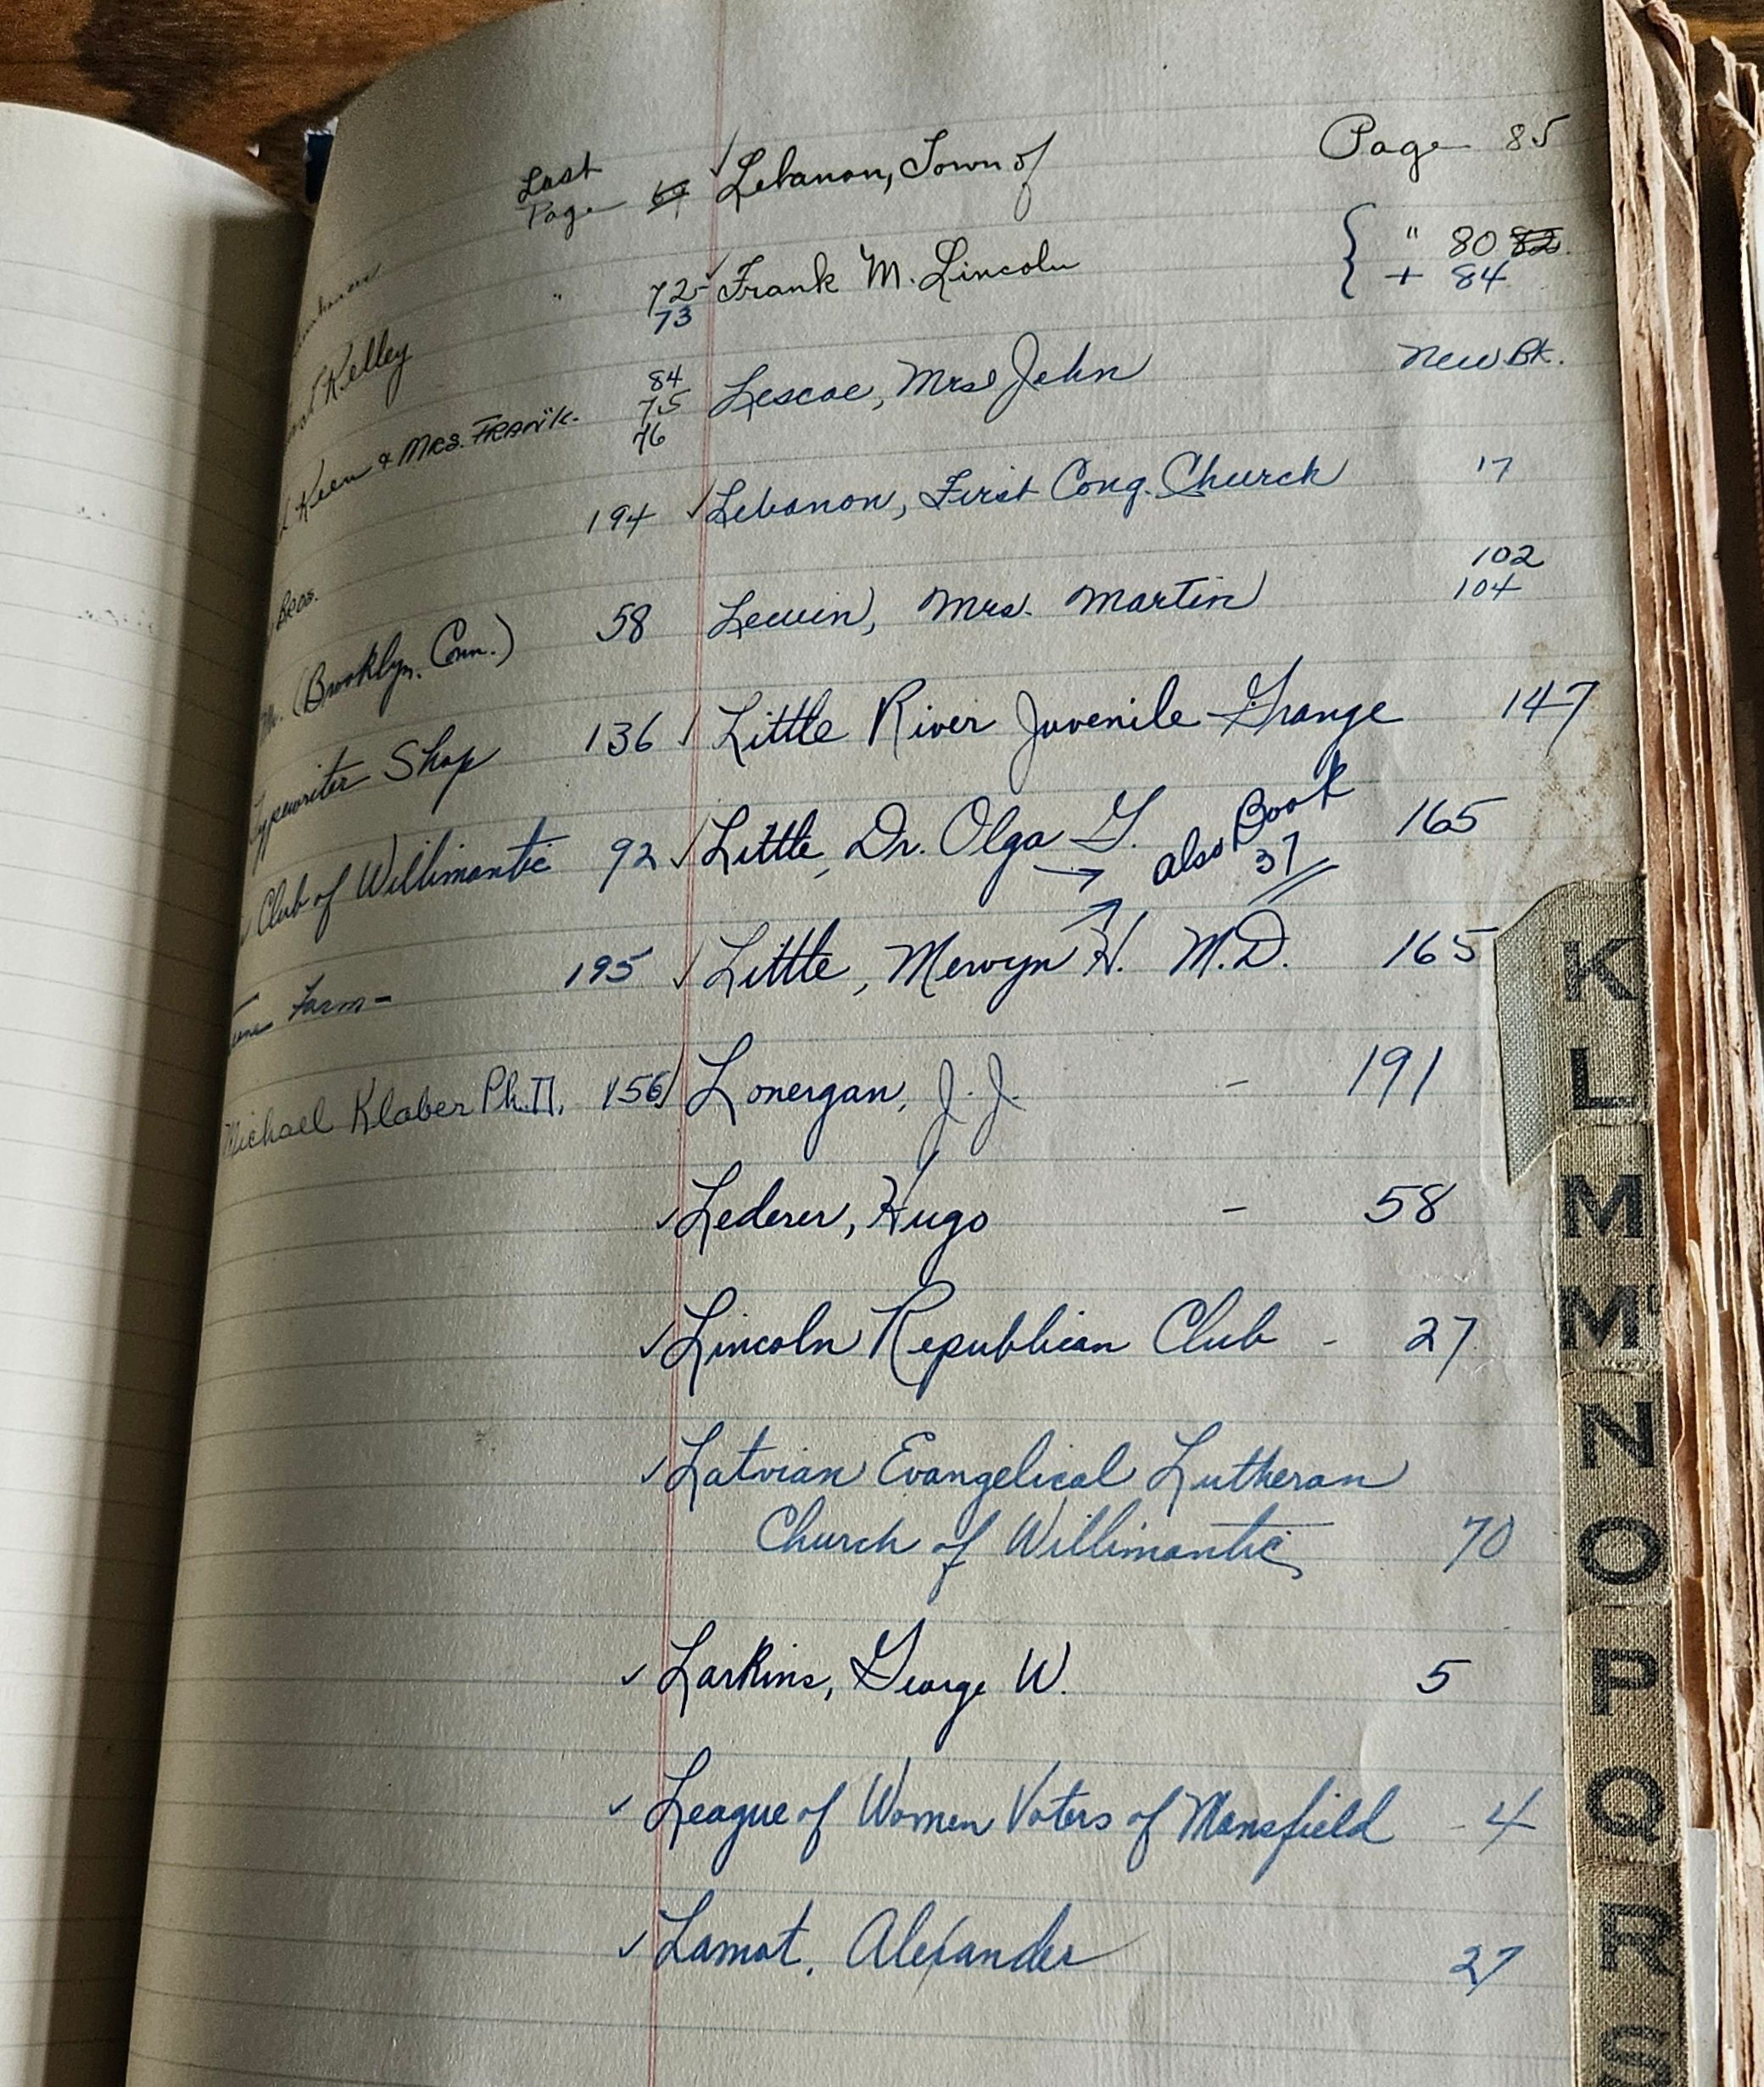 Last
Page 69 Lebanon, Town of Page 85
" 72 Frank M. Lincoln " 80 82
73 + 84
Kelley
84 Lescoe, Mrs John New Bk.
75
Keen & MRS. FRANK. 76
194 Lebanon, First Cong. Church 17
Bros. 102
(Brooklyn, Conn.) 58 Lewin, Mrs. Martin 104
Typewriter Shop 136 Little River Juvenile Grange 147
Club of Willimantic 92 Little, Dr. Olga G. → also Book 37 165
Farm - 195 Little, Mervyn H. M.D. 165
Michael Klaber Ph.D. 156 Lonergan, J. J. - 191
Lederer, Hugo - 58
Lincoln Republican Club - 27
Latvian Evangelical Lutheran
Church of Willimantic 70
Larkins, George W. 5
League of Women Voters of Mansfield - 4
Lamot, Alexander 27
K
L
M
Mc
N
O
P
Q
R
S